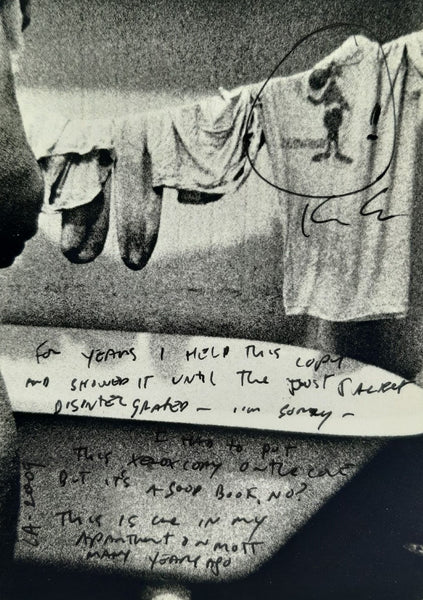 FOR YEARS I HELD THIS COPY
AND SHOWED IT UNTIL THE DUST JACKET
DISINTEGRATED — I'M SORRY —
I HAD TO PUT
THIS XEROX COPY ON THE COVER
BUT IT'S A GOOD BOOK, NO?
LA 2009
THIS IS ME IN MY
APARTMENT ON MOTT
MANY YEARS AGO